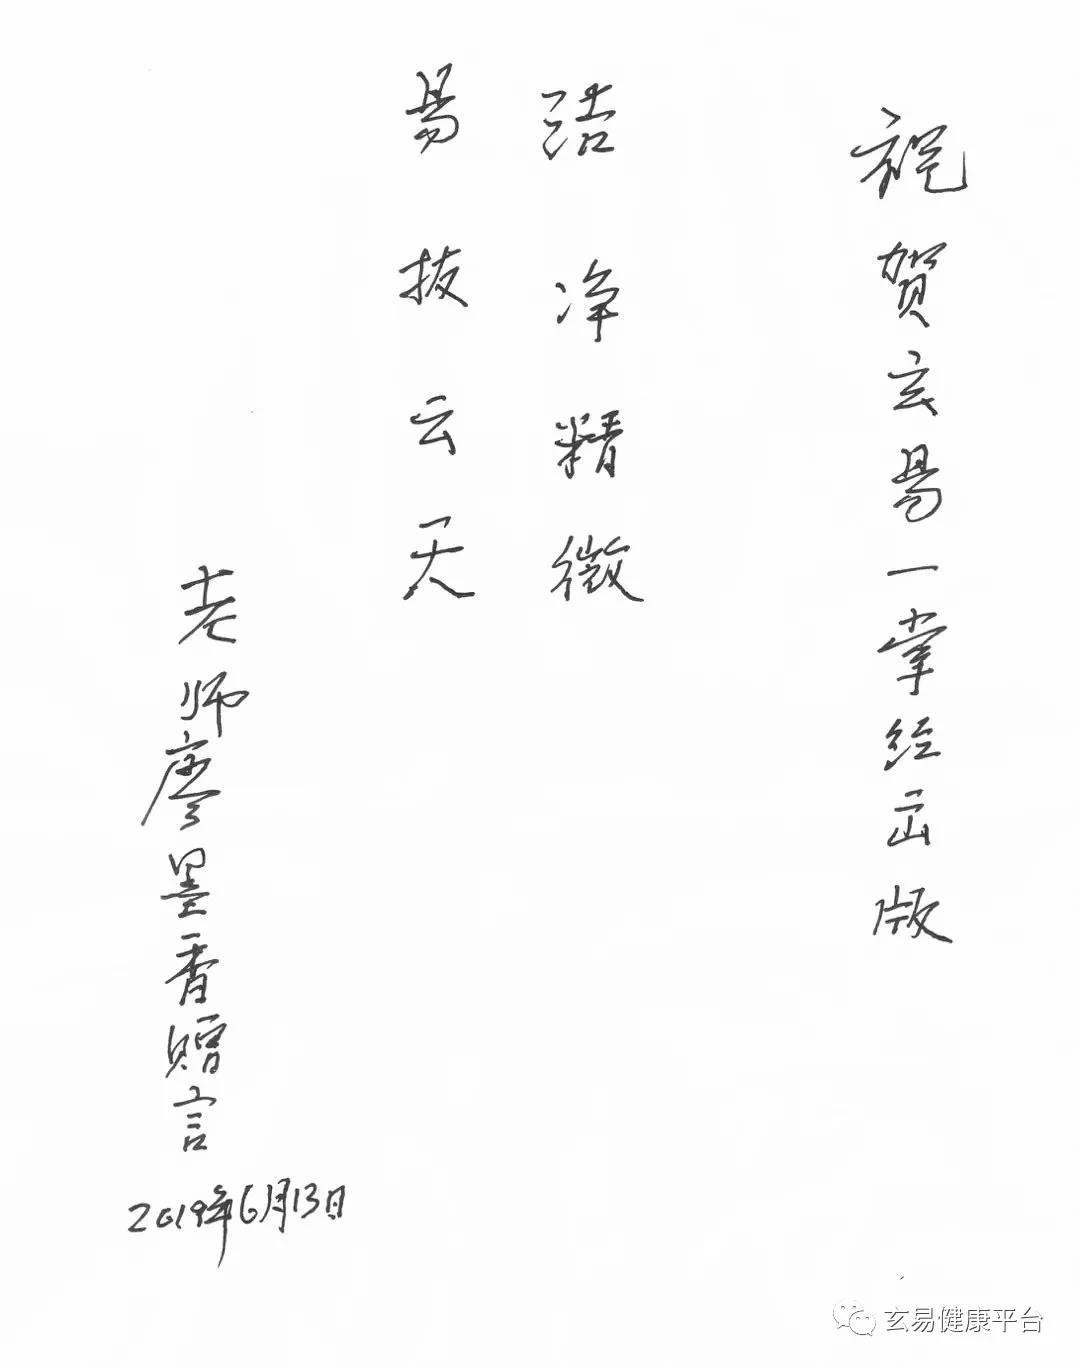 祝贺玄易一掌经出版
洁净精微
易拔云天
老师廖墨香赠言
2019年6月13日
玄易健康平台